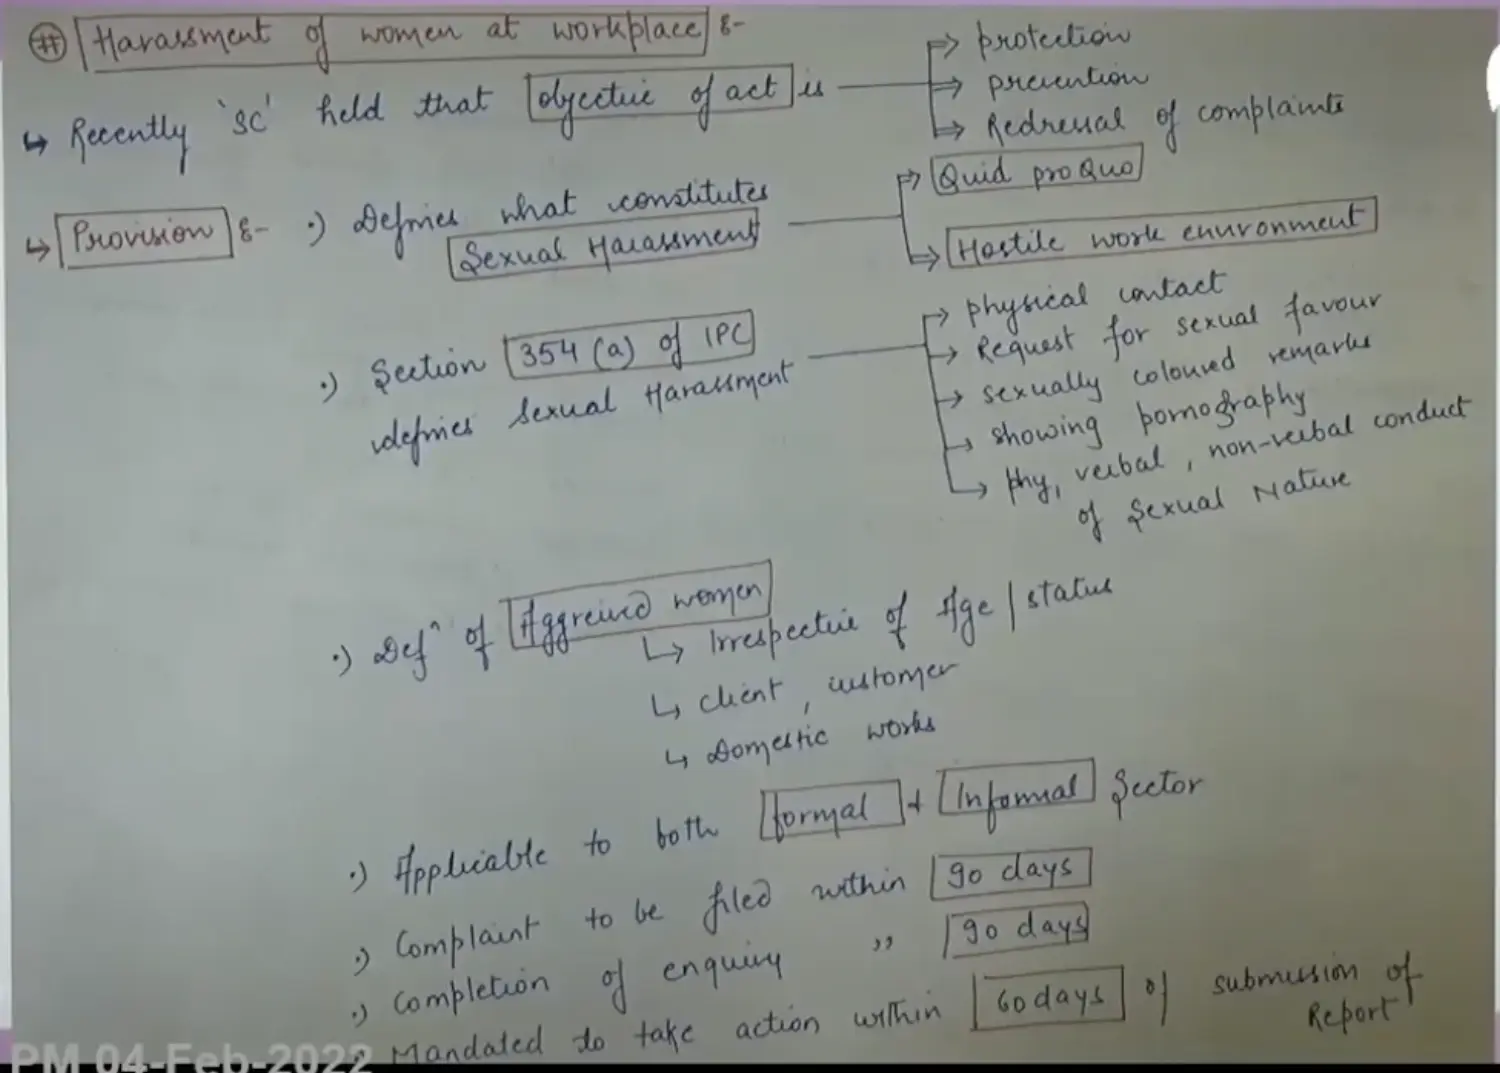 # Harassment of women at workplace :-
↳ Recently 'SC' held that objective of act is
→ protection
→ prevention
→ Redressal of complaints
↳ Provision :- •) Defines what constitutes Sexual Harassment
→ Quid pro Quo
→ Hostile work environment
•) Section 354 (a) of IPC
defines Sexual Harassment
→ physical contact
→ Request for sexual favour
→ sexually coloured remarks
→ showing pornography
→ phy, verbal, non-verbal conduct
of Sexual Nature
•) Defn of Aggreived women
↳ Irrespective of Age / status
↳ client, customer
↳ Domestic works
•) Applicable to both formal + Informal Sector
•) Complaint to be filed within 90 days
•) Completion of enquiry " 90 days
•) Mandated to take action within 60 days of submission of
Report
PM 04-Feb-2022